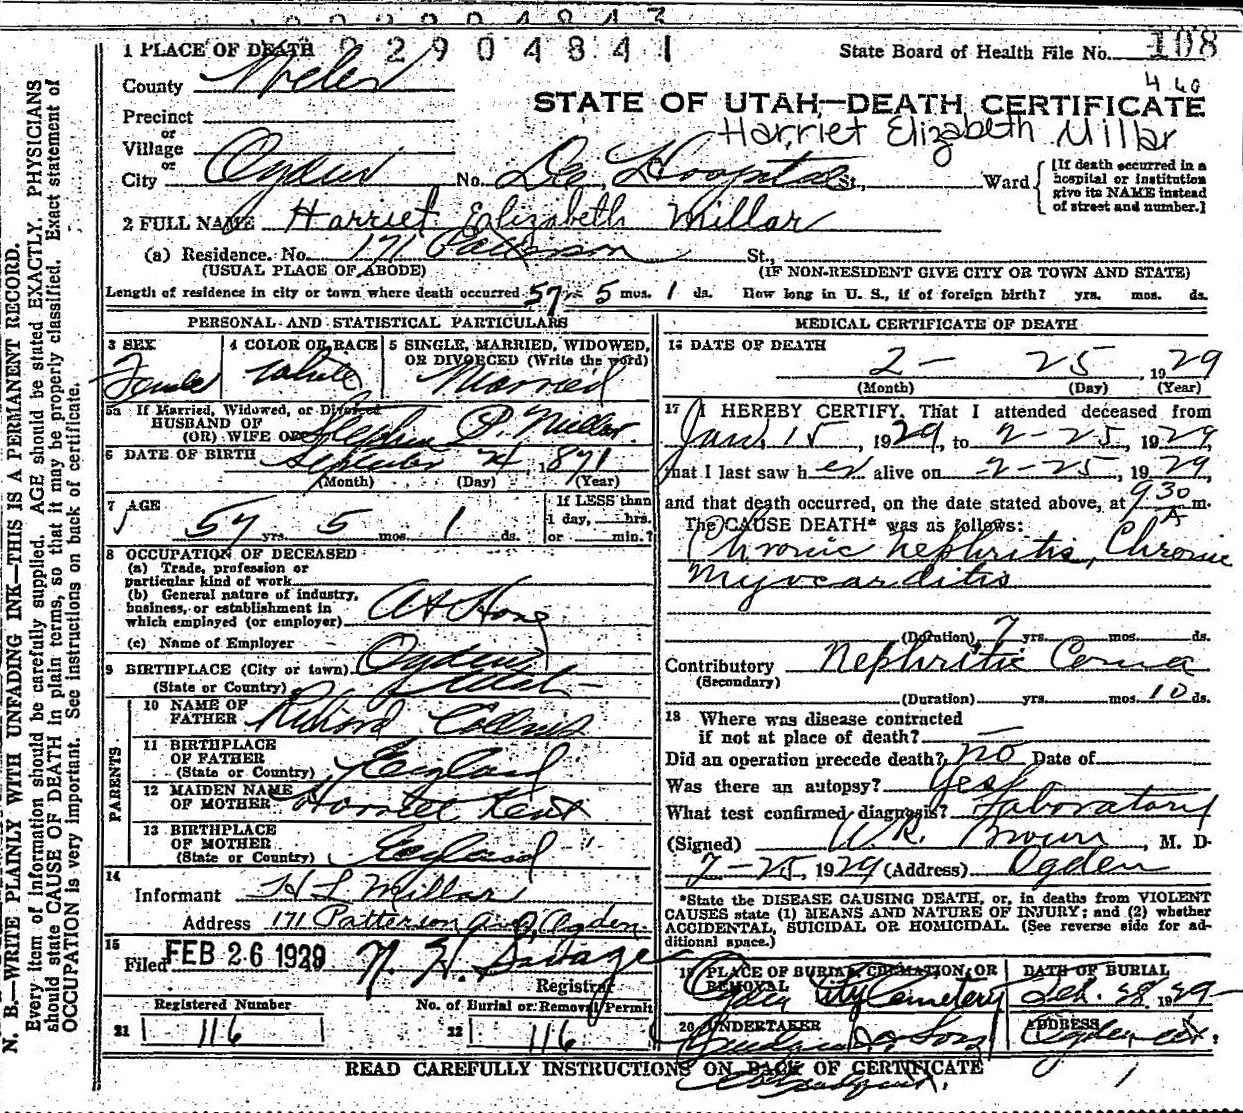 2 2 9 0 4 8 4 1
1 PLACE OF DEATH
State Board of Health File No. 108
County Weber
4 60
STATE OF UTAH—DEATH CERTIFICATE
Harriet Elizabeth Millar
Precinct
or
Village
or
City Ogden No. Dee Hospital St., Ward
[If death occurred in a
hospital or institution
give its NAME instead
of street and number.]
2 FULL NAME Harriet Elizabeth Millar
(a) Residence. No. 171 Patterson St.,
(USUAL PLACE OF ABODE) (IF NON-RESIDENT GIVE CITY OR TOWN AND STATE)
Length of residence in city or town where death occurred 57 yrs 5 mos. 1 ds. How long in U. S., if of foreign birth? yrs. mos. ds.
PERSONAL AND STATISTICAL PARTICULARS
3 SEX Female
4 COLOR OR RACE White
5 SINGLE, MARRIED, WIDOWED,
OR DIVORCED (Write the word)
Married
5a If Married, Widowed, or Divorced
HUSBAND OF
(OR) WIFE OF Stephen P. Millar
6 DATE OF BIRTH September 24, 1871
(Month) (Day) (Year)
7 AGE
57 yrs. 5 mos. 1 ds.
If LESS than
1 day, hrs.
or min.?
8 OCCUPATION OF DECEASED
(a) Trade, profession or
particular kind of work
(b) General nature of industry,
business, or establishment in
which employed (or employer) At Home
(c) Name of Employer
9 BIRTHPLACE (City or town) Ogden
(State or Country) Utah
PARENTS
10 NAME OF
FATHER Richard Collins
11 BIRTHPLACE
OF FATHER
(State or Country) England
12 MAIDEN NAME
OF MOTHER Kent
13 BIRTHPLACE
OF MOTHER
(State or Country) England
14
Informant H L Millar
Address 171 Patterson Ave, Ogden
15
Filed FEB 26 1929 Savage
Registrar
Registered Number No. of Burial or Removal Permit
21 116 22 116
MEDICAL CERTIFICATE OF DEATH
16 DATE OF DEATH
2- 25 1929
(Month) (Day) (Year)
17 I HEREBY CERTIFY, That I attended deceased from
Jan. 15, 1929, to 2-25, 1929,
that I last saw her alive on 2-25, 1929,
and that death occurred, on the date stated above, at 9 30 A m.
The CAUSE DEATH* was as follows:
Chronic Nephritis, Chronic
Myocarditis
(Duration) 7 yrs. mos. ds.
Contributory Nephritic Coma
(Secondary)
(Duration) yrs. mos. 10 ds.
18 Where was disease contracted
if not at place of death? —
Did an operation precede death? no Date of
Was there an autopsy? Yes
What test confirmed diagnosis? Laboratory
(Signed) W.R. Brown, M. D.
2-25, 1929 (Address) Ogden
*State the DISEASE CAUSING DEATH, or, in deaths from VIOLENT
CAUSES state (1) MEANS AND NATURE OF INJURY; and (2) whether
ACCIDENTAL, SUICIDAL OR HOMICIDAL. (See reverse side for ad-
ditional space.)
19 PLACE OF BURIAL, CREMATION, OR
REMOVAL
Ogden City Cemetery
DATE OF BURIAL
Feb. 28, 1929
20 UNDERTAKER
& Sons
ADDRESS
Ogden
READ CAREFULLY INSTRUCTIONS ON BACK OF CERTIFICATE
N. B.—WRITE PLAINLY WITH UNFADING INK—THIS IS A PERMANENT RECORD.
Every item of information should be carefully supplied. AGE should be stated EXACTLY. PHYSICIANS
should state CAUSE OF DEATH in plain terms, so that it may be properly classified. Exact statement of
OCCUPATION is very important. See instructions on back of certificate.